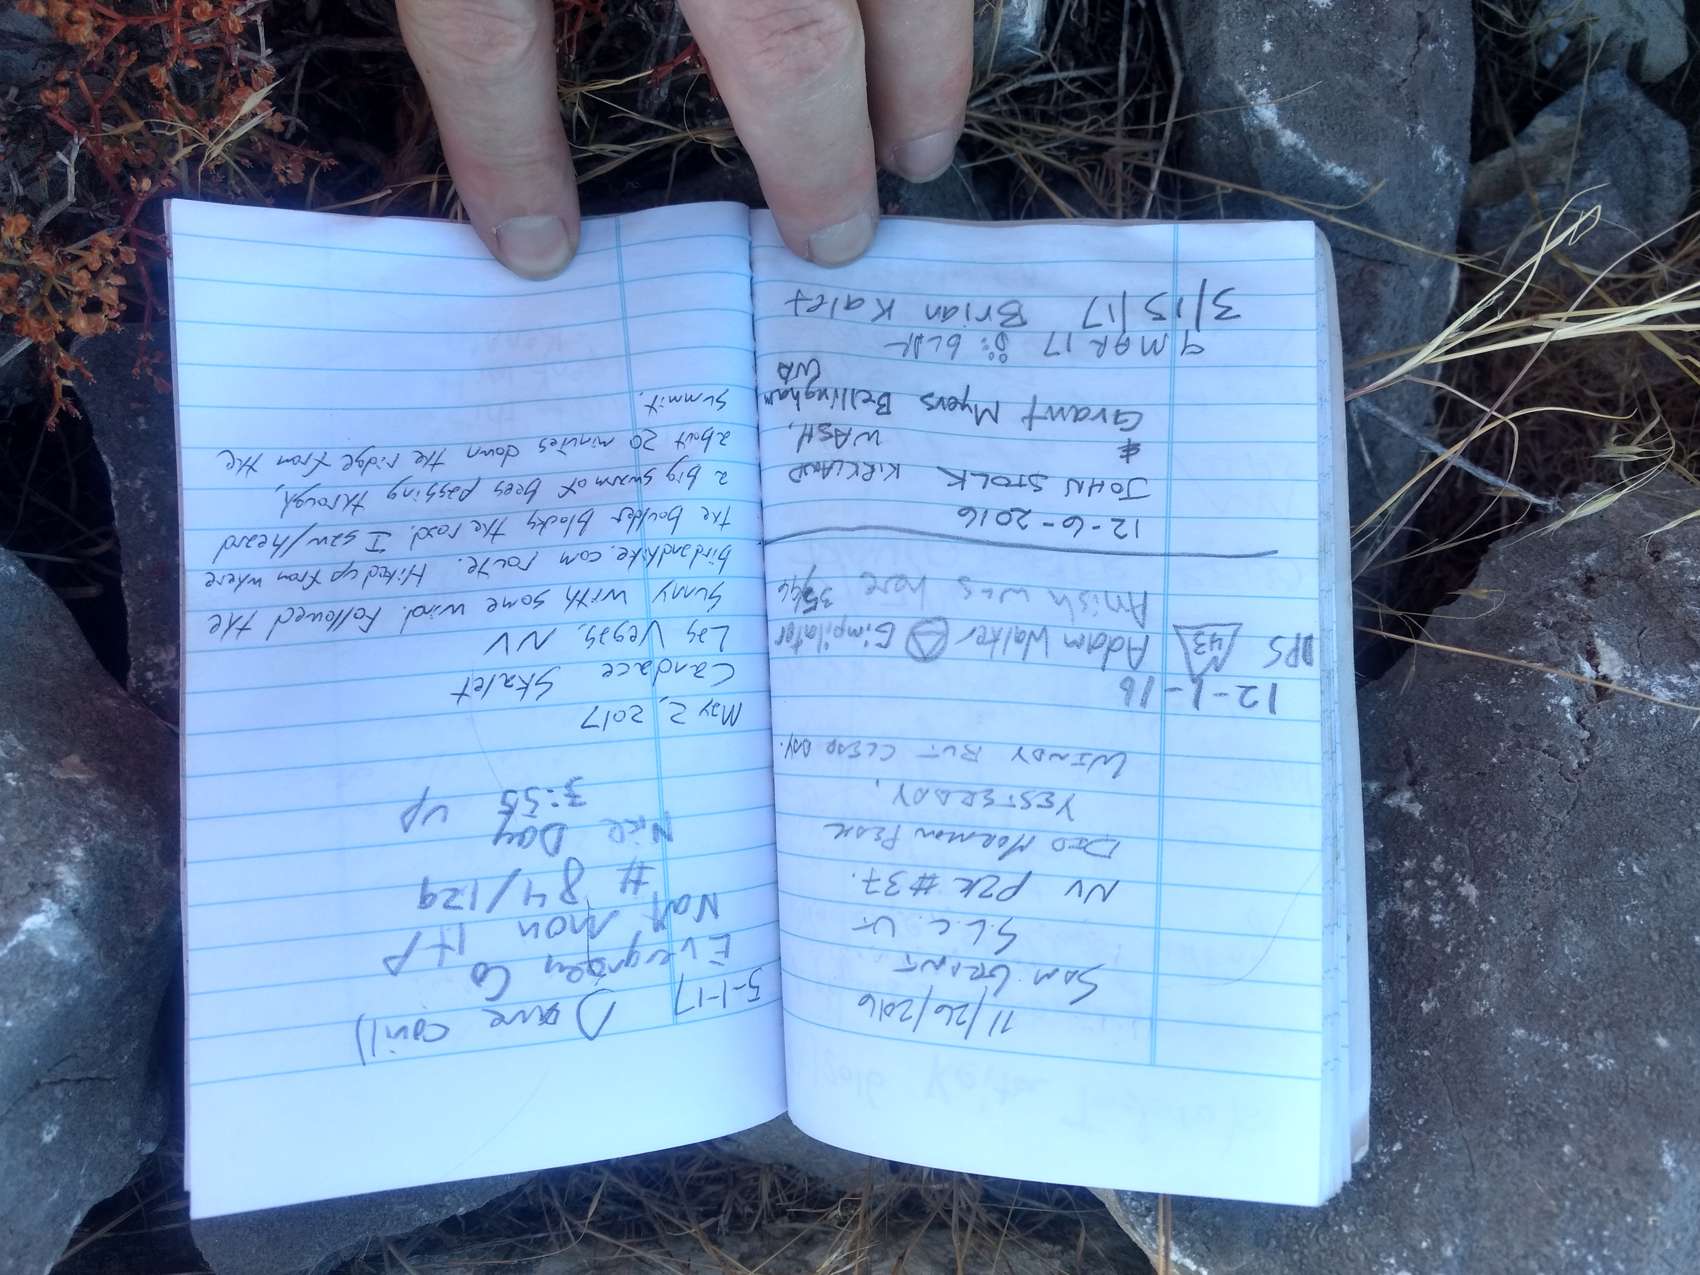 11/26/2016
SAM GRANT
S.L.C. UT
NV PZK #37.
DID MORMON PEAK
YESTERDAY.
WINDY BUT CLEAR DAY.
12-1-16
DPS 43 Adam Walker Gimpilator
Anish was here
12-6-2016
JOHN STOLK KIRKLAND
& WASH,
Grant Myers Bellingham
WA
9 MAR 17
3/13/17 Brian Kalet
5-1-17 Dave Covill
Evergreen Co
Nat Mon HP
# 84/129
Nice Day
3:55 up
May 2, 2017
Candace Skalet
Las Vegas, NV
Sunny with some wind. Followed the
birdandhike.com route. Hiked up from where
the boulder blocks the road. I saw/heard
a big swarm of bees passing through,
about 20 minutes down the ridge from the
summit.